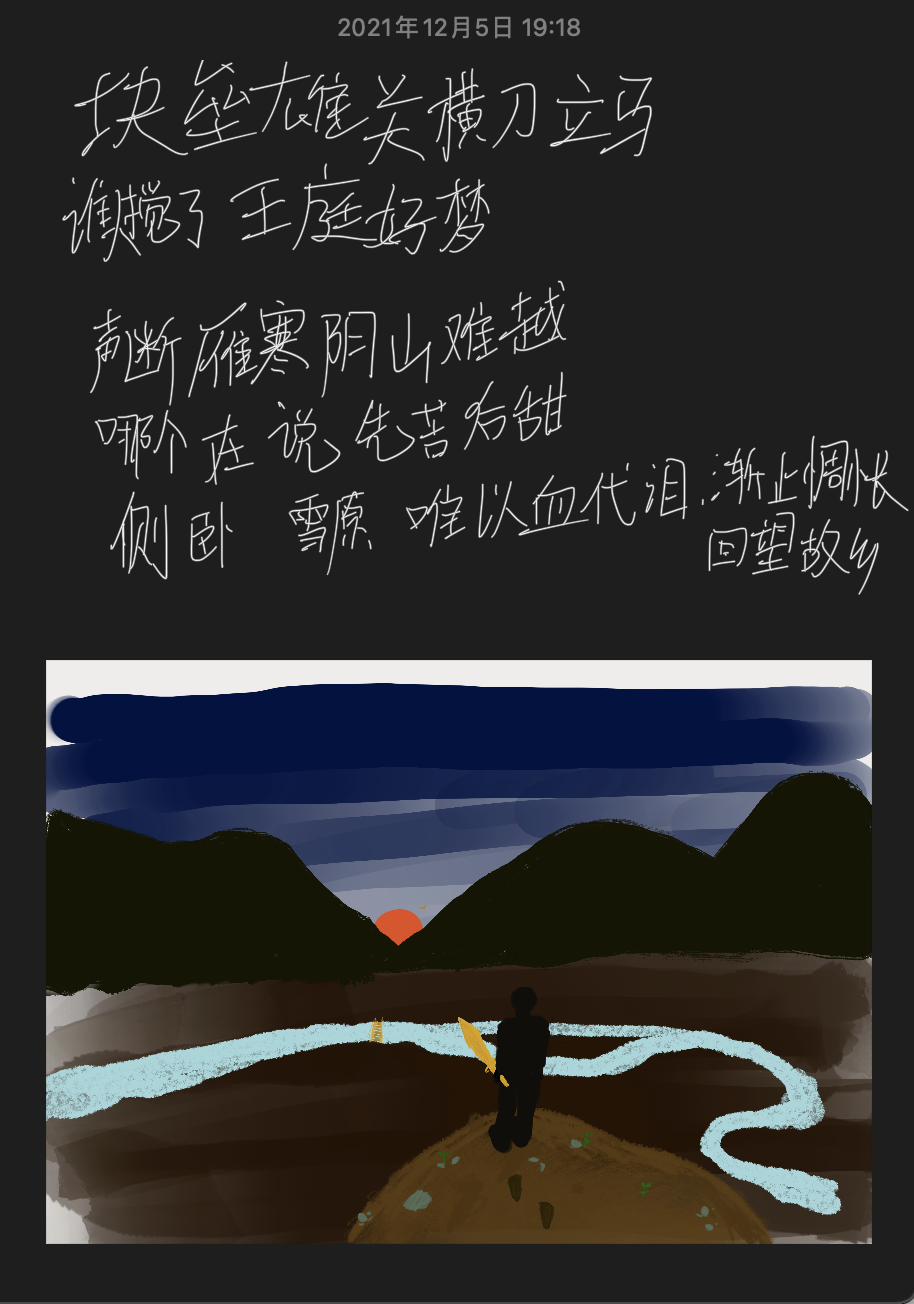 2021年12月5日 19:18
块垒雄关横刀立马
谁搅了王庭好梦
声断雁寒阴山难越
哪个在说先苦后甜
侧卧 雪原 唯以血代泪.渐止惆怅
回望故乡